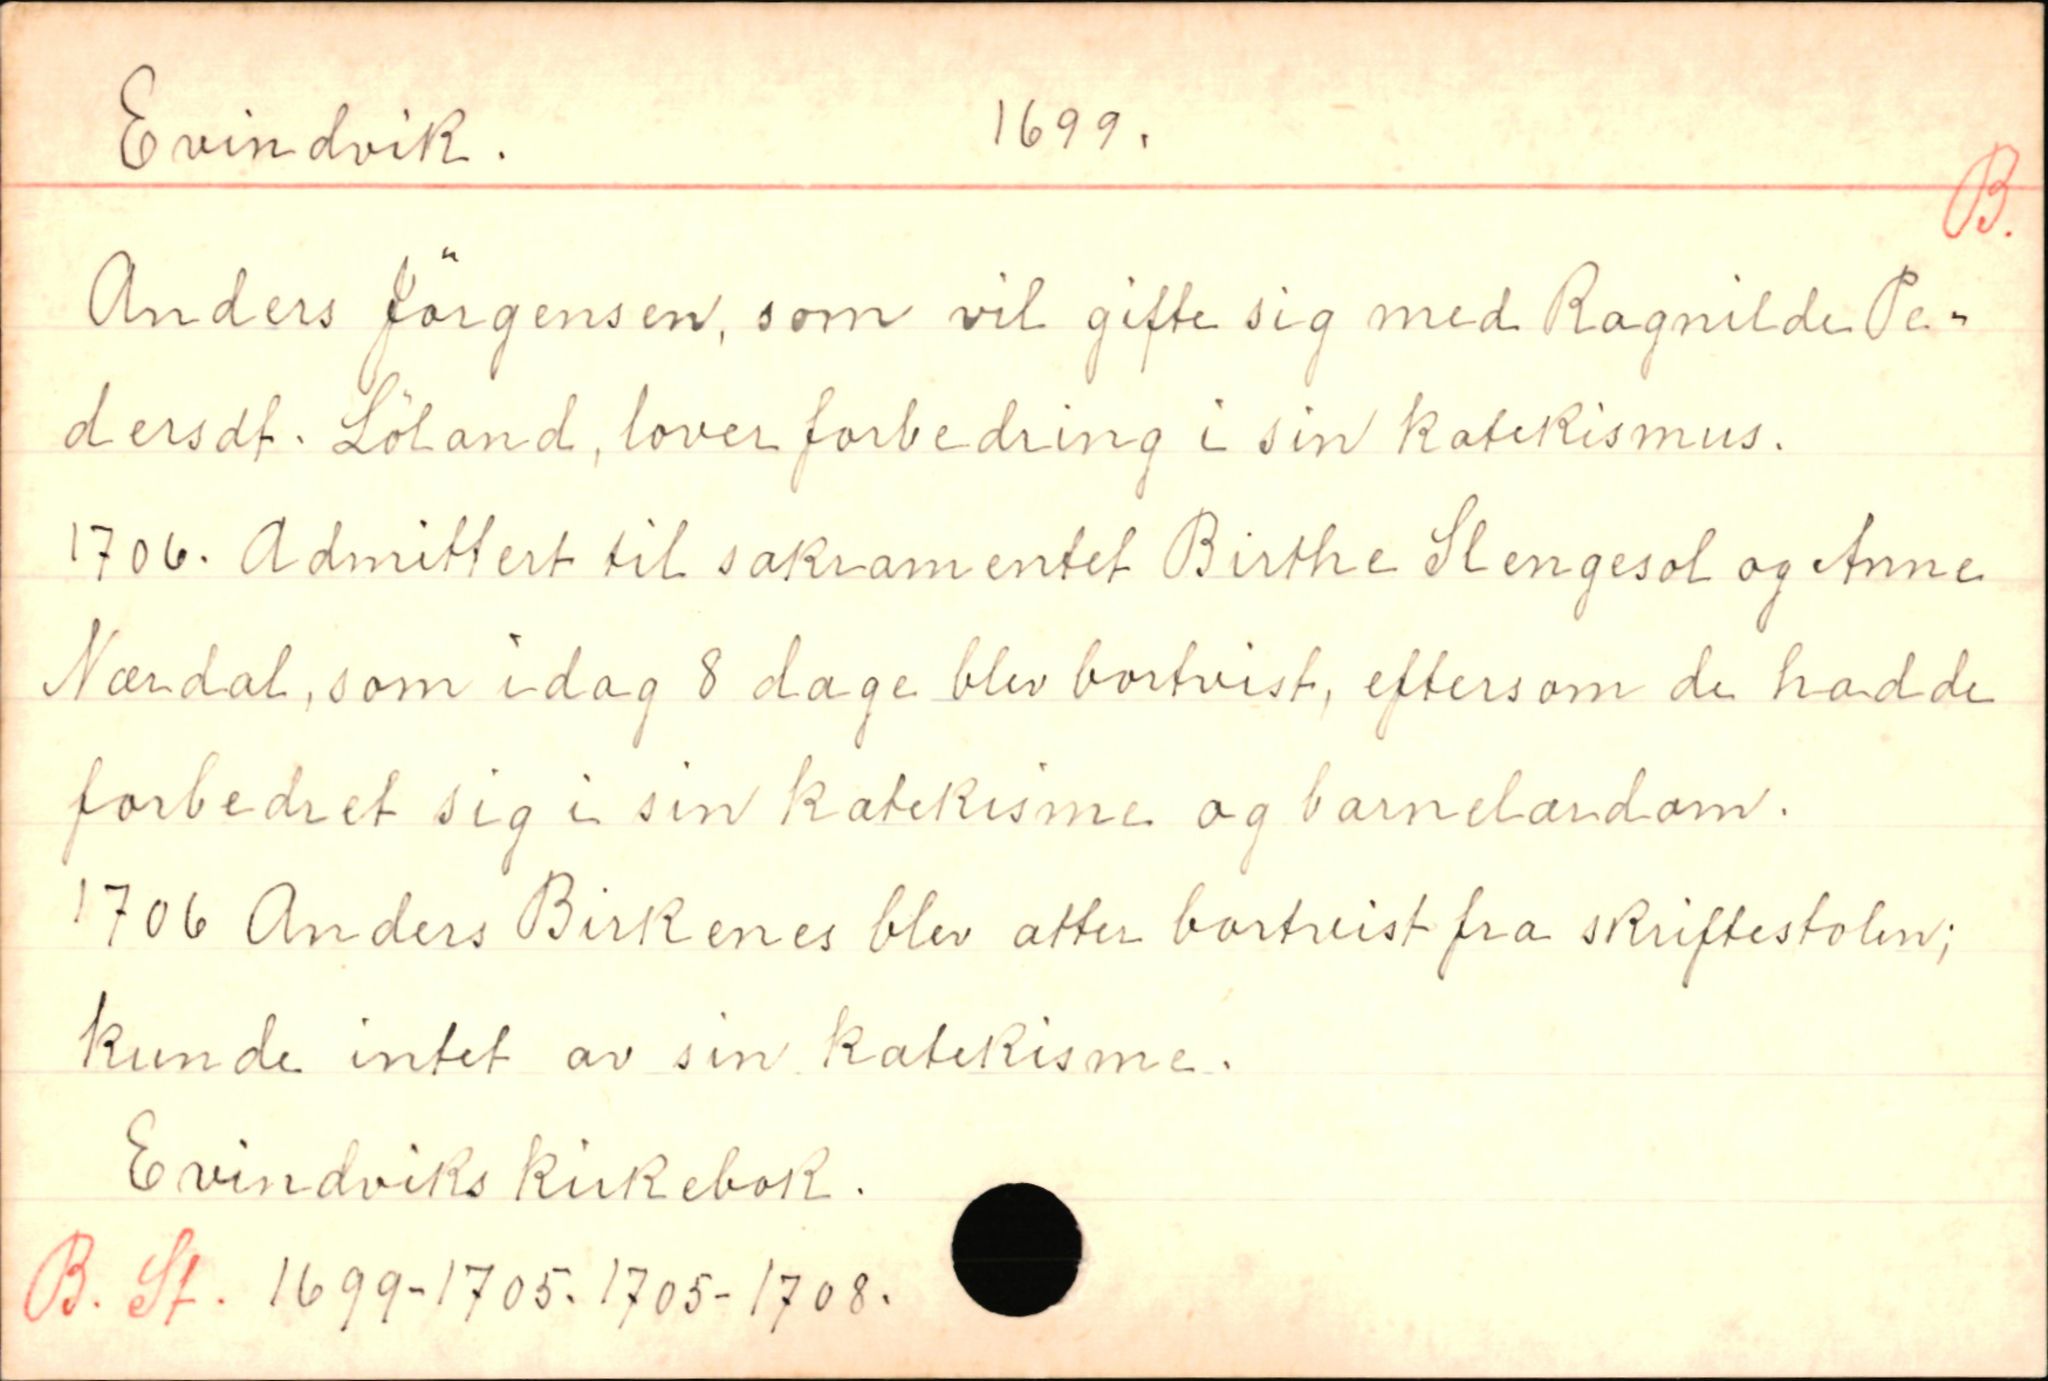 Evindvik. 1699.
B.
Anders Jörgensen, som vil gifte sig med Ragnilde Pe-
dersdt. Löland, lover forbedring i sin katekismus.
1706. Admittert til sakramentet Birthe Slengesol og Anne
Nærdal, som idag 8 dage blev bortvist, eftersom de hadde
forbedret sig i sin katekisme og barnelærdom.
1706 Anders Birkenes blev atter bortvist fra skriftestolen;
kunde intet av sin katekisme.
Evindviks kirkebok.
B. St. 1699-1705. 1705-1708.